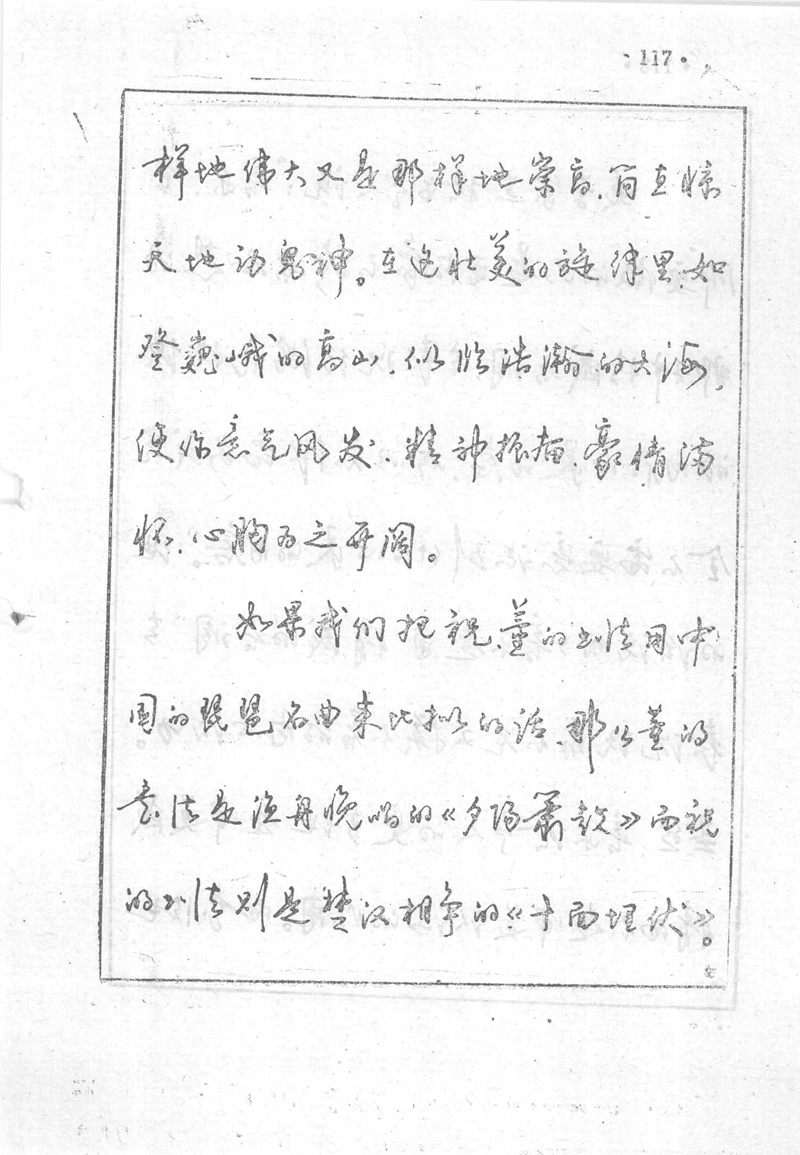 ·117·
样地伟大又是那样地崇高、简直惊
天地动鬼神。在这壮美的旋律里、如
登巍峨的高山、似临浩瀚的大海，
使你意气风发、精神振奋、豪情满
怀、心胸为之开阔。
如果我们把祝、董的书法用中
国的琵琶名曲来比拟的话、那么董的
书法是渔舟晚唱的《夕阳萧鼓》而祝
的书法则是楚汉相争的《十面埋伏》。